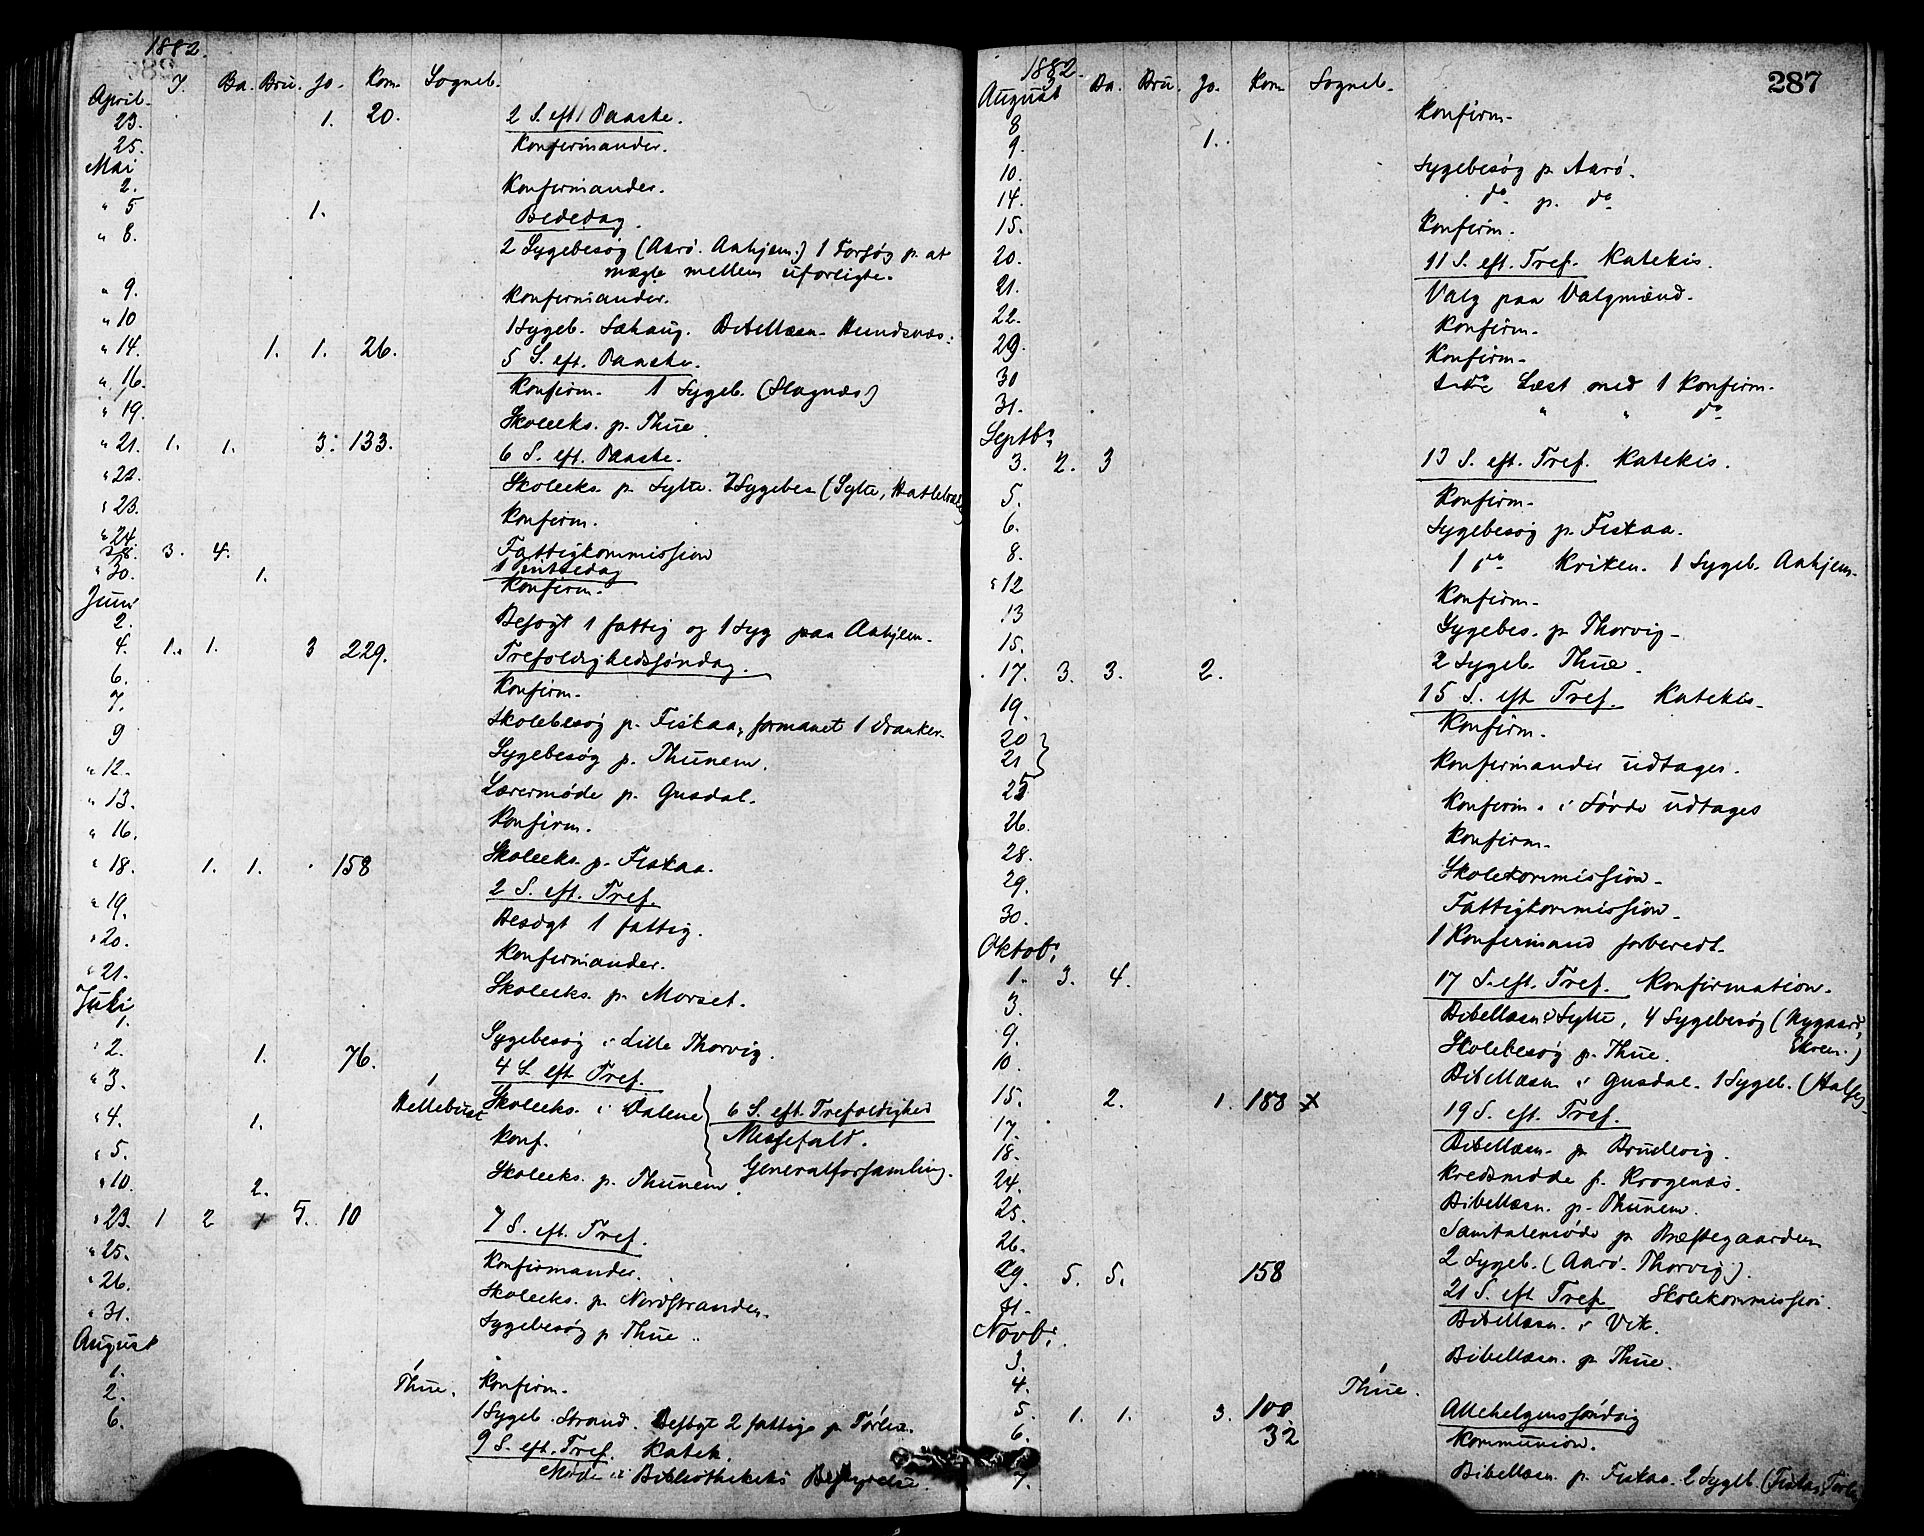 1882.
April. I. Ba. Bru. Jo. Kom. Sogneb.
23. 1. 20. 2 S. eft. Paaske.
25. Konfirmander.
Mai
2. Konfirmander.
" 5 1. Bededag.
" 8. 2 Sygebesøg (Aarö. Aahjem.) 1 Forsøg p. at
mægle mellem uforligte.
" 9. Konfirmander.
" 10 1 Sygeb. Sæhaug. Bibellæsn. Hundsnæs.
" 14. 1. 1. 26. 5 S. eft. Paaske.
" 16. Konfirm. 1 Sygeb. (Slagnæs)
" 19. Skoleeks. p. Thue.
" 21. 1. 1. 3. 133. 6 S. eft. Paaske.
" 22. Skoleeks. p. Sylte. 2 Sygebes (Sylte,
" 23. Konfirm.
" 24. Fattigkommission
28. 3. 4. 1 Pintsedag
" 30. 1. Konfirm.
Juni
2. Besøgt 1 fattig og 1 syg paa Aahjem.
4. 1. 1. 3 229. Trefoldighedssøndag.
6. Konfirm.
7. Skolebesøg p. Fiskaa, formanet 1 Dranker.
9 Sygebesøg p. Thunem.
" 12. Lærermøde p. Gusdal.
" 13. Konfirm.
" 16. Skoleeks. p. Fiskaa.
" 18. 1. 1. 158 2 S. eft. Tref.
" 19. Besøgt 1 fattig.
" 20. Konfirmander.
" 21. Skoleeks. p. Morset.
Juli
1. Sygebesøg i Lille Thorvig.
" 2. 1. 76. 4 S. eft Tref.
" 3. Hellebust Skoleeks. i Dalene 6 S. eft. Trefoldighed
" 4. 1. Konf. Messefald.
" 5. Skoleeks. p. Thunem. Generalforsamling.
" 10. 2.
" 23. 1 2 5. 10 7 S. eft. Tref.
" 25. Konfirmander.
" 26. Skoleeks. p. Nordstranden.
" 31. Sygebesøg p Thue.
August
1. Thue. Konfirm.
2. 1 Sygeb. Strand. Besøgt 2 fattige p
6. 9 S. eft. Tref. Katek.
Møde i Bibliothekets Bestyrelse.
287
1882.
August I. Ba. Bru. Jo. Kom. Sogneb.
8 Konfirm.
9. 1.
10. Sygebesøg p. Aarö.
14. do p. do
15. Konfirm.
20. 11 S. eft. Tref. Katekis.
21. Valg paa Valgmænd.
22. Konfirm.
29. Konfirm.
30 Læst med 1 Konfirm.
31. " " do
Septbr.
3. 2. 3 13 S. eft. Tref. Katekis.
5. Konfirm.
6. Sygebesøg p. Fiskaa.
8. 1 do Kriken. 1 Sygeb. Aahjem.
" 12 Konfirm.
13 Sygebes. p. Thorvig.
15. 2 Sygeb. Thue.
17. 3. 3. 2. 15 S. eft Tref. Katekis.
19. Konfirm.
20
21 Konfirmander udtages.
25 Konfirm. i Sørde udtages
26. Konfirm.
28. Skolekommission.
29. Fattigkommission.
30. 1 Konfirmand forberedt.
Oktobr.
1. 3. 4. 17 S. eft. Tref. Konfirmation.
3. Bibellæsn. i Sylte, 4 Sygebesøg (Nygaard,
9. Skolebesøg p. Thue. Ekrem.)
10. Bibellæsn i Gusdal. 1 Sygeb.
15. 2. 1. 188 x 19 S. eft. Tref.
17. Bibellæsn. p Brudevig.
18. Kredsmøde p. Krogenæs.
24. Bibellæsn. p. Thunem.
25. Samtalemøde p Præstegaarden
26. 2 Sygeb. (Aarö. Thorvig).
29. 5. 5. 158 21 S. eft Tref. Skolekommission.
31. Bibellæsn. i Vik.
Novbr.
3. Bibellæsn. p. Thue.
4. Thue.
5. 1. 1. 3. 100 Allehelgenssöndag
6. 32 Kommunion.
7. Bibellæsn. p. Fiskaa. 2 Sygeb. (Fiskaa,